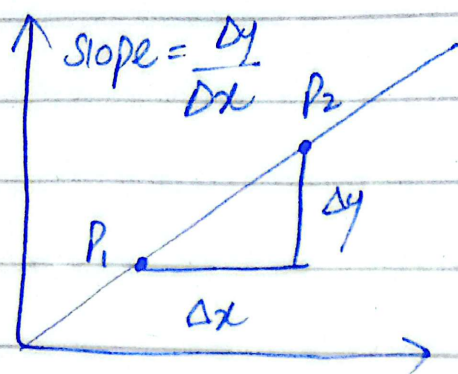 slope = Δy/Δx
P₂
Δy
P₁
Δx